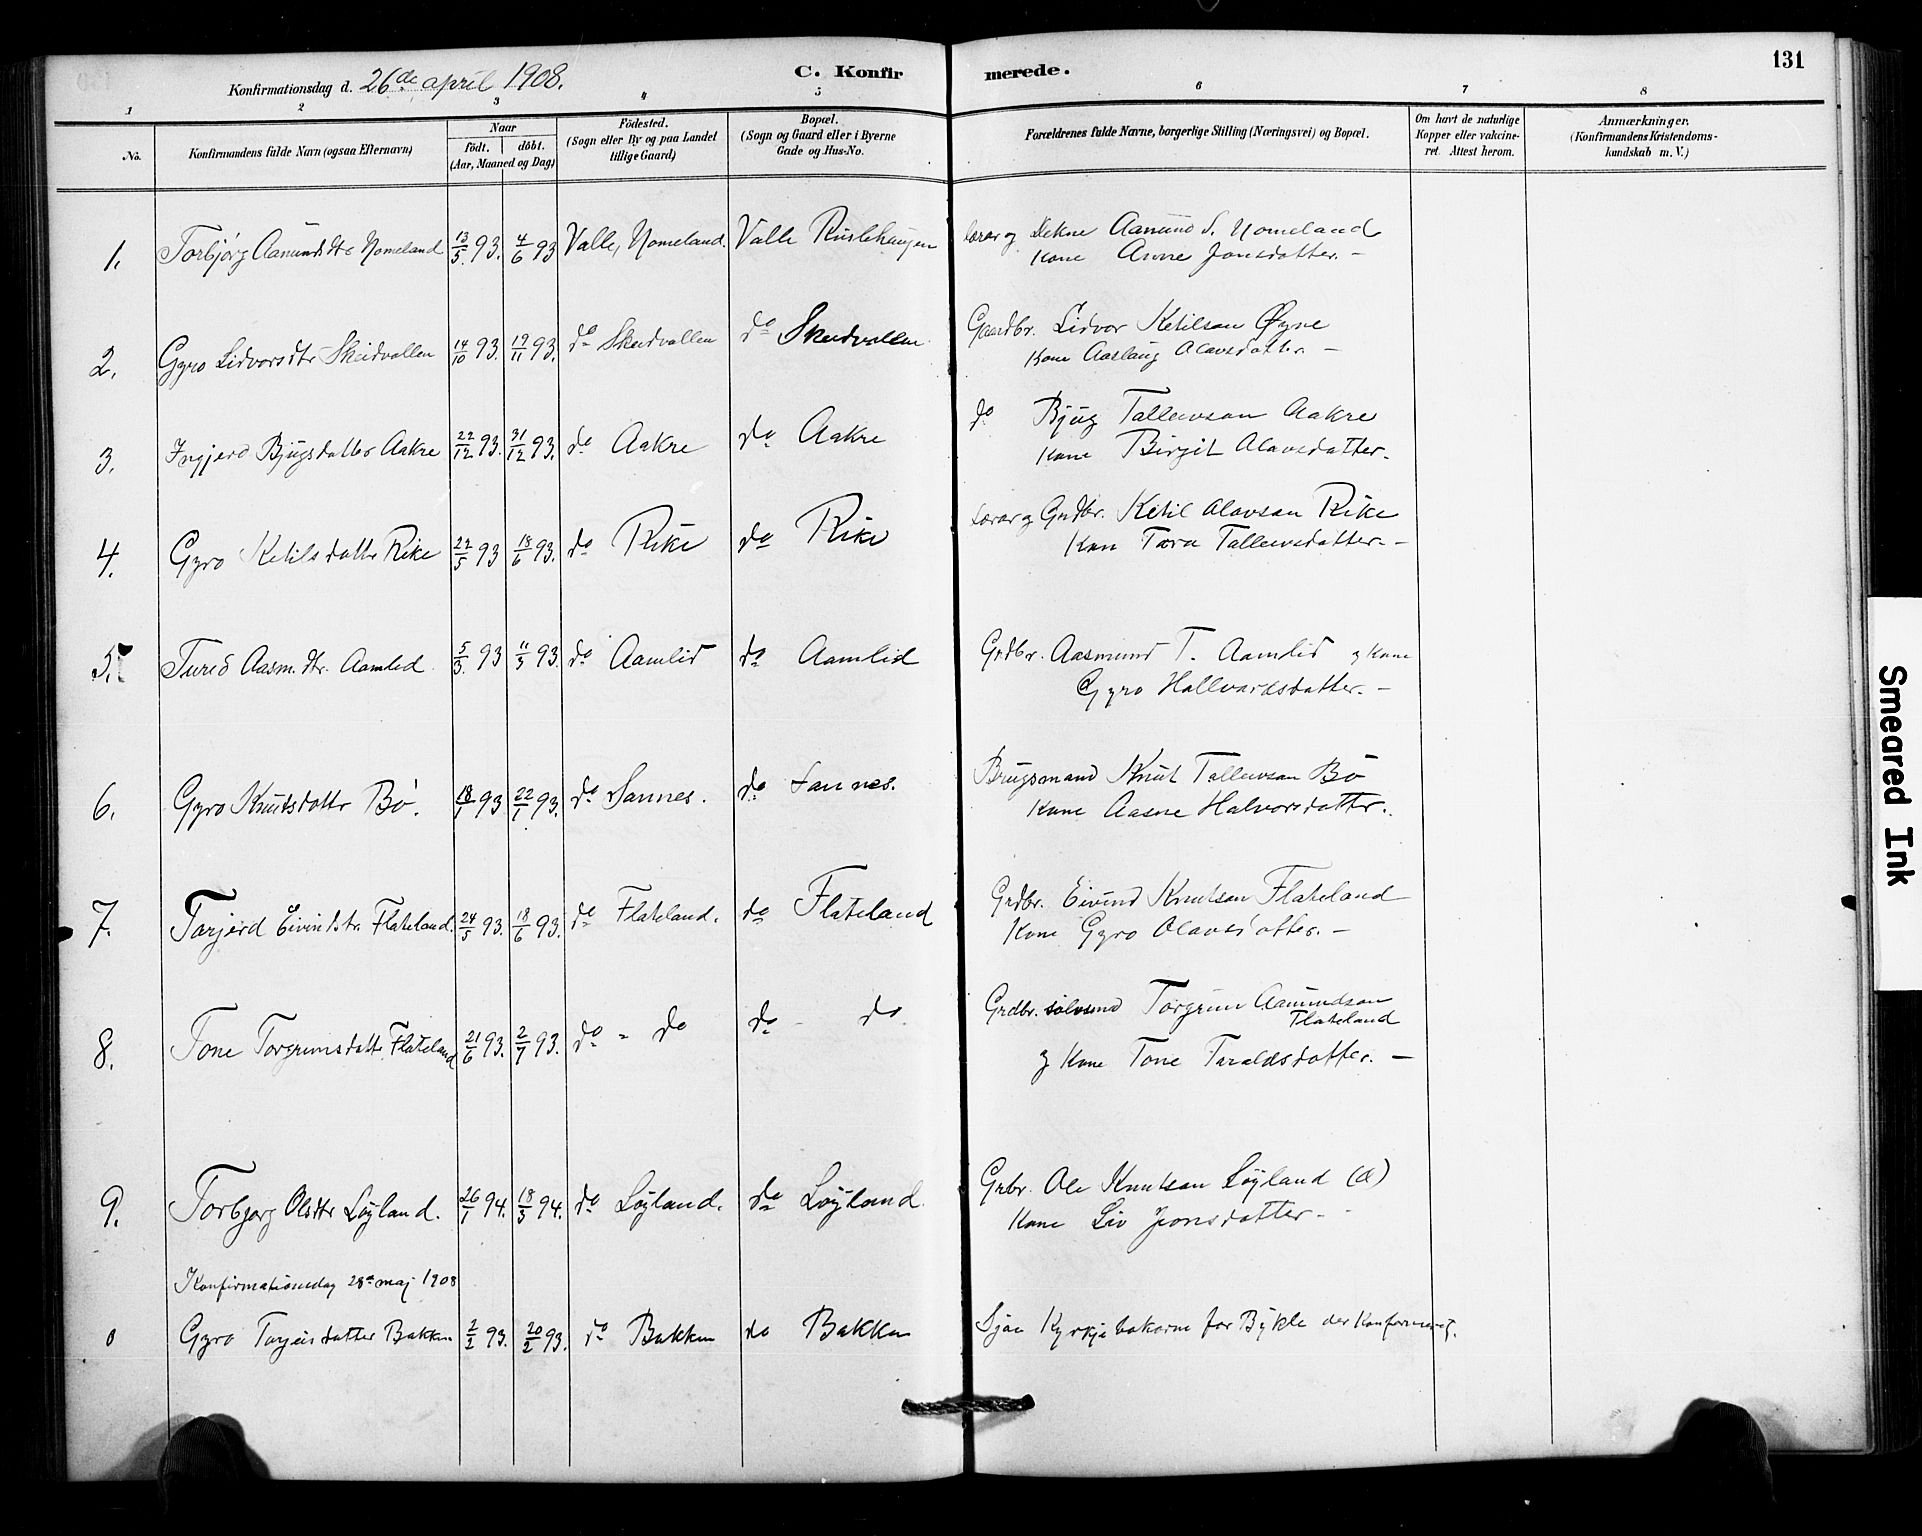 131
Konfirmationsdag d. 26de april 1908.
C. Konfirmerede.
1 2 3 4 5 6 7 8
No.
Konfirmandens fulde Navn (ogsaa Efternavn)
Naar
födt. döbt.
(Aar, Maaned og Dag)
Födested.
(Sogn eller By og paa Landet
tillige Gaard)
Bopæl.
(Sogn og Gaard eller i Byerne
Gade og Hus-No.
Forældrenes fulde Navne, borgerlige Stilling (Næringsvei) og Bopæl.
Om havt de naturlige
Kopper eller vakcine-
ret. Attest herom.
Anmærkninger.
(Konfirmandens Kristendoms-
kundskab m. V.)
1. Torbjörg Aamunds dtr Nomeland 13/5 93. 4/6 93 Valle, Nomeland. Valle Ruslehaugen Lærar og Dekne Aamund S. Nomeland
Kone Anne Jonsdatter. -
2. Gyro Lidvorsdtr Skeidvollen 14/10 93. 19/11 93. do Skeidvollen do Skeidvollen Gaardbr. Lidvor Ketilson Øyne
Kone Aaslaug Olavsdatter -
3. Ingjerd Bjugsdatter Aakre 22/12 93. 31/12 93. do Aakre do Aakre do Bjug Tallevson Aakre
Kone Birgit Olavsdatter.
4. Gyro Ketilsdattr Rike 22/5 93 18/6 93. do Rike do Rike Lærar og Grdbr. Ketil Olavson Rike
Kone Tora Tallevsdatter. -
5. Turid Aasm. dtr. Aamlid 5/3. 93 11/3 93. do Aamlid do Aamlid Grdbr. Aasmund T. Aamlid og Kone
Gyro Hallvardsdatter. -
6. Gyro Knutsdattr Bö. 18/1 93 22/1 93. do Sannes. do Sannes. Brugsmand Knut Tallevson Bö
Kone Aasne Halvorsdattr.
7. Tarjerd Eivindstr. Flateland. 24/5 93. 18/6 93. do Flateland. do Flateland Grdbr. Eivind Knutson Flateland
Kone Gyro Olavsdotter. -
8. Tone Torgrimsdattr Flateland 21/6 93. 2/7 93. do - do do - do. Grdbr. sölvsmd Torgrim Aamundson
Flateland
og Kone Tone Taraldsdotter. -
9. Torbjorg Olsdtr Löyland. 26/1 94. 18/3 94. do Löyland. do Löyland. Grbr. Ole Knutson Löyland (d)
Kone Liv Jonsdatter -
Konfirmationsdag 28de maj 1908
0 Gyro Torjeisdatter Bakken 2/2 93. 20/2 93. do Bakken do Bakken Sjaa Kyrkjebokorne for Bykle der Konfirmeret.
Smeared Ink